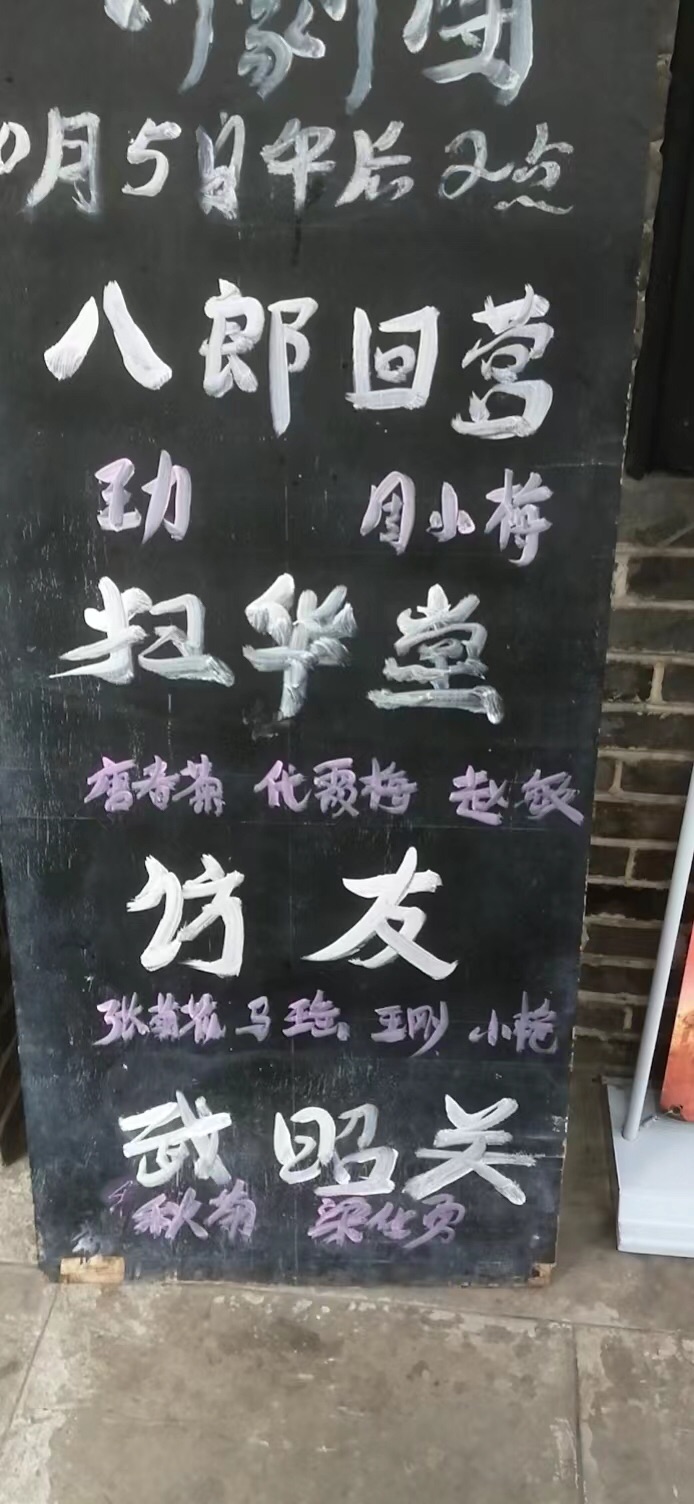 川剧团
0月5日午后2点
八郎回营
王力 周小梅
扫华堂
唐春菊 代霞梅 赵
访友
张菊花 马 王刚 小艳
武昭关
秋菊 梁仕勇